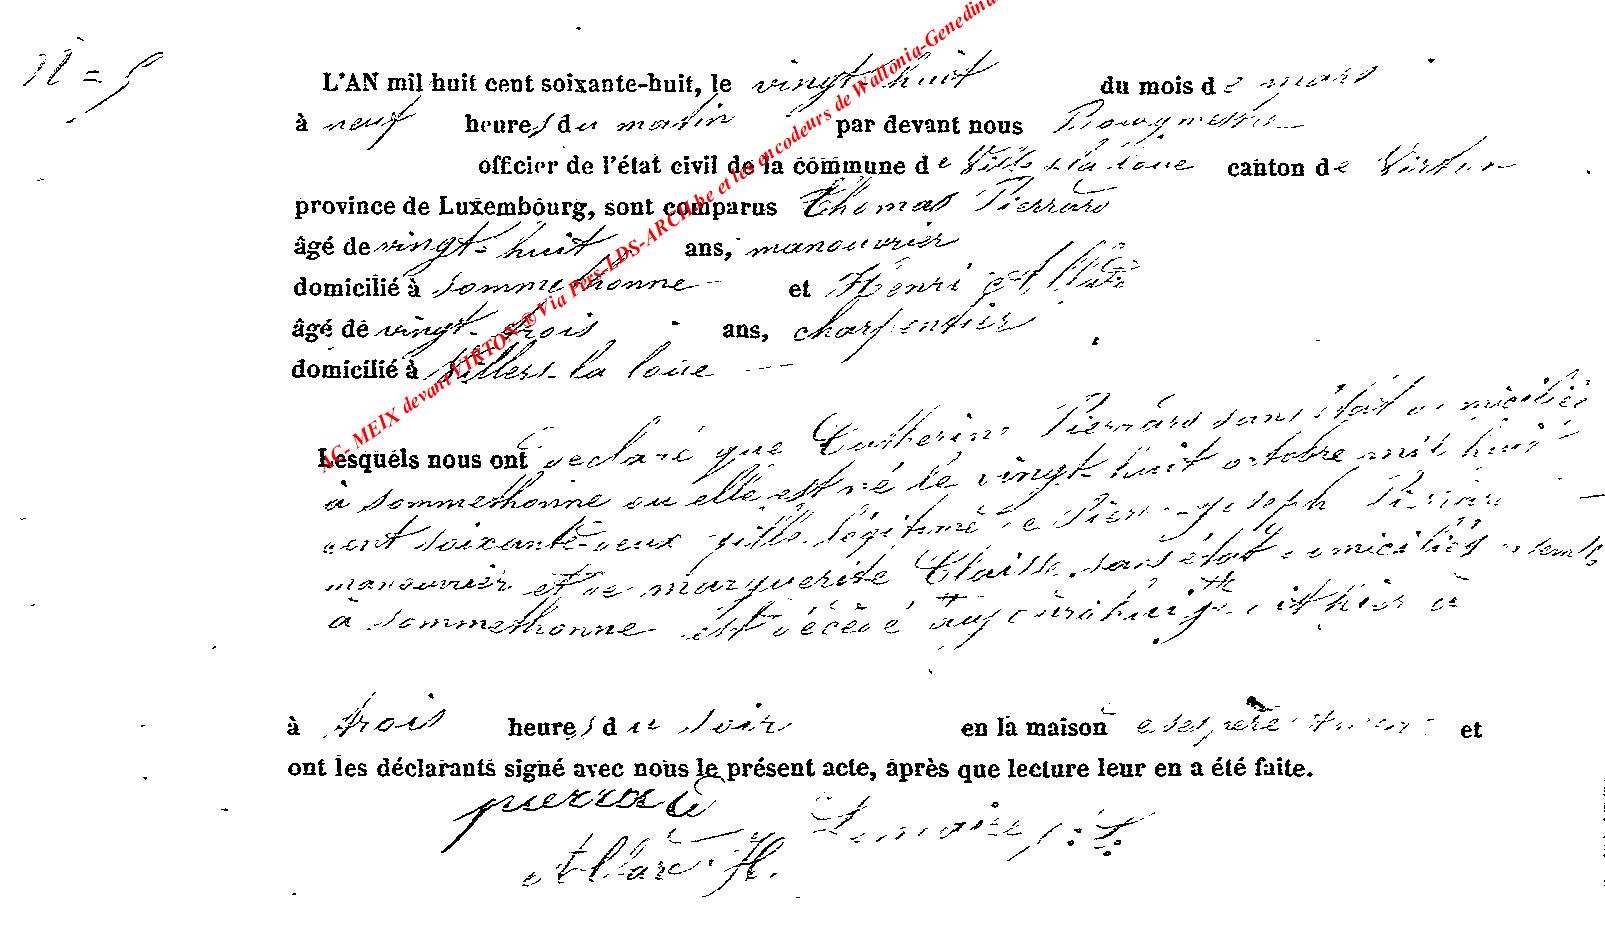 N = 5
L'AN mil huit cent soixante-huit, le vingt-huit du mois de mars
à neuf heures du matin par devant nous Bourgmestre
officier de l'état civil de la commune de la loue canton de Virton
province de Luxembourg, sont comparus Thomas Pierrard
âgé de vingt-huit ans, manouvrier
domicilié à Sommethonne et Henri Allard
âgé de vingt-trois ans, charpentier
domicilié à Villers-la loue
Lesquels nous ont déclaré que Catherine Pierrard sans état domiciliée
à Sommethonne ou elle est né le vingt-huit octobre mil huit
cent soixante-deux fille légitime de Pierre-Joseph Pierrard
manouvrier et de marguerite Claisse sans état domiciliés ensemble
à Sommethonne est décédé aujourd'hui hier à
à trois heures du soir en la maison de ses père et
ont les déclarants signé avec nous le présent acte, après que lecture leur en a été faite.
pierrard
Lemaire J: J:
Allard. H.
AC-MEIX devant VIRTON ® Via Pers-LDS-ARCH.be et les encodeurs de Wallonia-Genedin